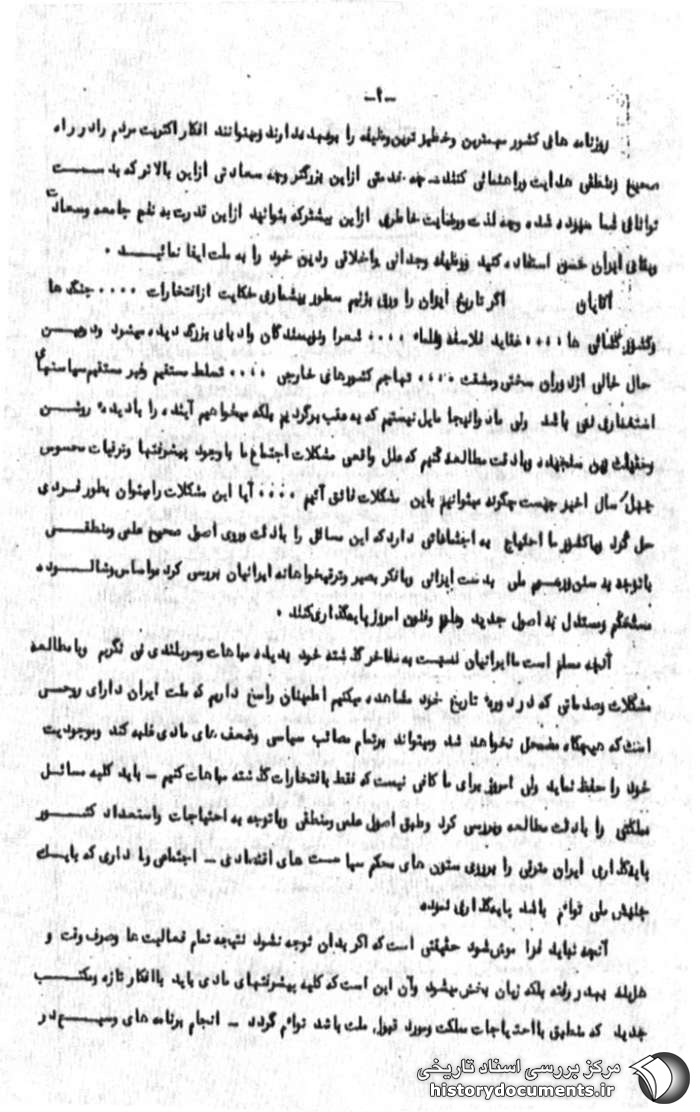 -۲-
روزنامه های کشور مهمترین وخطیر ترین وظیفه را بعهده دارند ومیتوانند افکار اکثریت مردم رادر راه
صحیح ومنطقی هدایت وراهنمائی کنند چه خدمتی ازاین بزرگتر وچه سعادتی ازاین بالاتر که بدست
توانای شما سپرده شده وچه لذت ورضایت خاطری ازاین بیشتر که بتوانید ازاین قدرت به نفع جامعه وسعادت
ایران حسن استفاده کنید ووظیفه وجدانی واخلاقی ودین خود را به ملت ایفا نمائید .
آقایان اگر تاریخ ایران را ورق بزنیم سطور بیشماری حکایت ازافتخارات .... جنگ ها
وکشور گشائی ها .... عقاید فلاسفه وعلماء .... شعرا ونویسندگان وادبای بزرگ دیده میشود ودرعین
حال خالی ازدوران سختی ومشقت .... تهاجم کشورهای خارجی .... تسلط مستقیم وغیر مستقیم سیاستهای
استعماری نمی باشد ولی مادراینجا مایل نیستیم که به عقب برگردیم بلکه میخواهیم آینده را بادیده روشن
وبادقت مطالعه کنیم که علل واقعی مشکلات اجتماع ما باوجود پیشرفتها وترقیات محسوس
چهل سال اخیر چیست چگونه میتوانیم باین مشکلات فائق آئیم .... آیا این مشکلات رامیتوان بطور فردی
حل کرد ویاکشور ما احتیاج به اجتماعاتی داردکه این مسائل را بادقت وروی اصول صحیح علمی ومنطقی
باتوجه به سنن ورسوم ملی بدست ایرانی وبافکر بصیر وترقیخواهانه ایرانیان بررسی کرده واساس وشالوده
مستحکم ومستدل به اصول جدید وعلوم وفنون امروز پایه گذاری کنند .
آنچه مسلم است ماایرانیان نسبت به مفاخر گذشته خود بدیده مباهات وسربلندی می نگریم وبا مطالعه
مشکلات وصدماتی که در دوره تاریخ خود مشاهده میکنیم اطمینان راسخ داریم که ملت ایران دارای روحی
است که هیچگاه مضمحل نخواهد شد ومیتواند برتمام مصائب سیاسی وضعف های مادی غلبه کند وموجودیت
خود را حفظ نماید ولی امروز برای ما کافی نیست که فقط بافتخارات گذشته مباهات کنیم - باید کلیه مسائل
مملکتی را بادقت مطالعه وبررسی کرد وطبق اصول علمی ومنطقی وباتوجه به احتیاجات واستعداد کشور
پایه گذاری ایران مترقی را برروی ستون های محکم سیاست های اقتصادی - اجتماعی و اداری که بایک
جنبش ملی توام باشد پایه گذاری نموده
آنچه نباید فراموش شود حقیقتی است که اگر بدان توجه نشود نتیجه تمام فعالیت ها وصرف وقت و
هزینه بهدر رفته بلکه زیان بخش میشود وآن این است که کلیه پیشرفتهای مادی باید باافکار تازه ومکتب
جدید که منطبق بااحتیاجات مملکت ومورد قبول ملت باشد توام گردد - انجام برنامه های وسیع در
مرکز بررسی اسناد تاریخی
historydocuments.ir